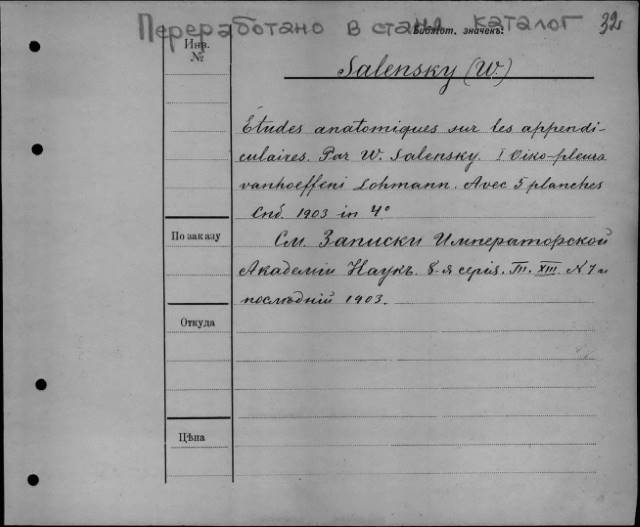 Переработано в стан. каталог 32
Библіот. значекъ:
Инв.
№
Salensky (W.)
Études anatomiques sur les appendi-
culaires. Par W. Salensky. I Oiko-pleura
vanhoeffeni Lohmann. Avec 5 planches
Спб. 1903 in 4°
По заказу
См. Записки Императорской
Академіи Наукъ. 8-я серія. Т. XIII. N 7 и
послѣдній 1903.
Откуда
Цѣна